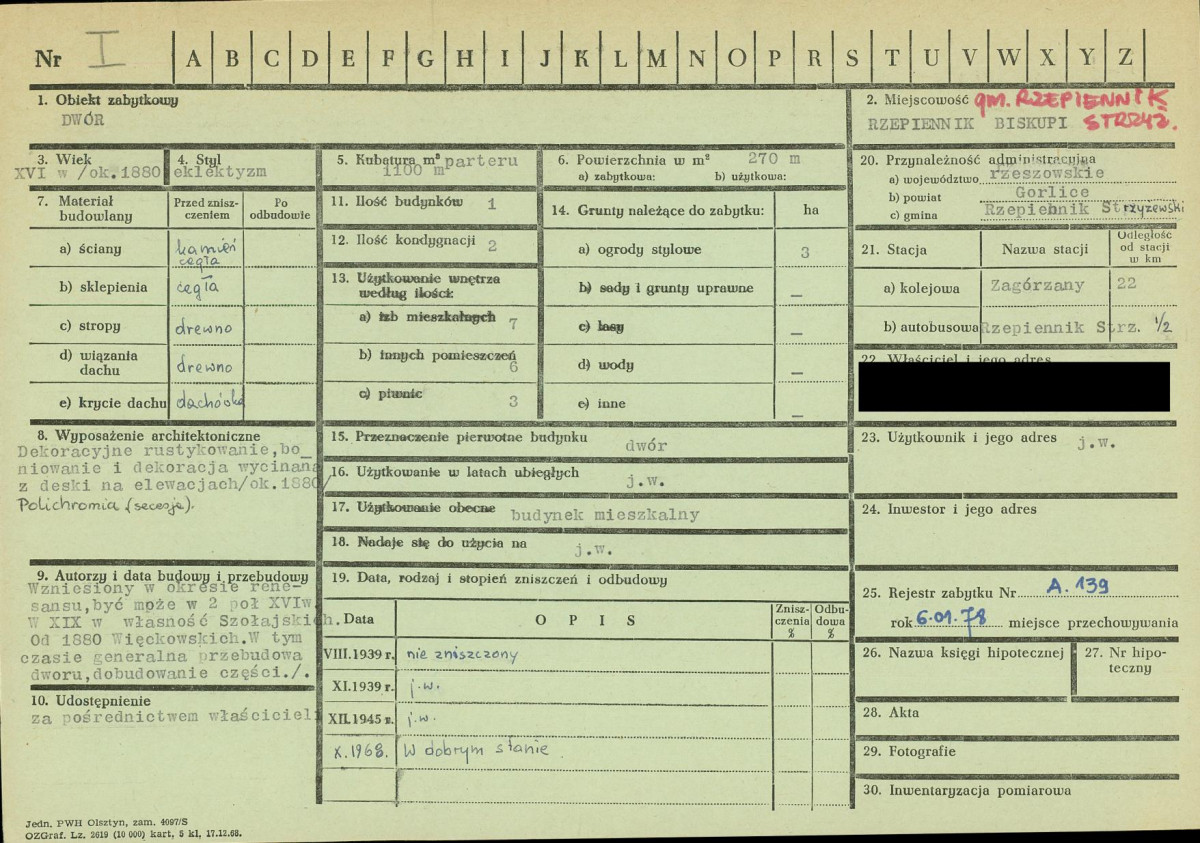 Nr I A B C D E F G H I J K L M N O P R S T U V W X Y Z
1. Obiekt zabytkowy
DWÓR
2. Miejscowość gm. RZEPIENNIK
RZEPIENNIK BISKUPI STRZYŻ.
3. Wiek
XVI w /ok.1880
4. Styl
eklektyzm
5. Kubatura m³ parteru
1100 m
6. Powierzchnia w m² 270 m
a) zabytkowa: b) użytkowa:
7. Materiał budowlany
Przed zniszczeniem
Po odbudowie
a) ściany kamień
cegła
b) sklepienia cegła
c) stropy drewno
d) wiązania
dachu drewno
e) krycie dachu dachówka
8. Wyposażenie architektoniczne
Dekoracyjne rustykowanie,bo_
niowanie i dekoracja wycinana
z deski na elewacjach/ok.1880/
Polichromia (secesja).
9. Autorzy i data budowy i przebudowy
Wzniesiony w okresie rene-
sansu,być może w 2 poł XVIw.
W XIX w własność Szołajskich.
Od 1880 Więckowskich.W tym
czasie generalna przebudowa
dworu,dobudowanie części./.
10. Udostępnienie
za pośrednictwem właściciel
11. Ilość budynków 1
12. Ilość kondygnacji 2
13. Użytkowanie wnętrza
według ilości:
a) izb mieszkalnych 7
b) innych pomieszczeń
6
c) piwnic 3
14. Grunty należące do zabytku: ha
a) ogrody stylowe 3
b) sady i grunty uprawne –
c) lasy –
d) wody –
e) inne –
15. Przeznaczenie pierwotne budynku
dwór
16. Użytkowanie w latach ubiegłych
j.w.
17. Użytkowanie obecne budynek mieszkalny
18. Nadaje się do użycia na
j.w.
19. Data, rodzaj i stopień zniszczeń i odbudowy
Data O P I S Zniszczenia % Odbudowa %
VIII.1939 r. nie zniszczony
XI.1939 r. j.w.
XII.1945 r. j.w.
X.1968. W dobrym stanie.
20. Przynależność administracyjna
a) województwo rzeszowskie
b) powiat Gorlice
c) gmina Rzepiennik Strzyżewski
21. Stacja Nazwa stacji Odległość
od stacji
w km
a) kolejowa Zagórzany 22
b) autobusowa Rzepiennik Strz. 1/2
22. Właściciel i jego adres
23. Użytkownik i jego adres j.w.
24. Inwestor i jego adres
25. Rejestr zabytku Nr A. 139
rok 6.01.78 miejsce przechowywania
26. Nazwa księgi hipotecznej
27. Nr hipo-
teczny
28. Akta
29. Fotografie
30. Inwentaryzacja pomiarowa
Jedn. PWH Olsztyn, zam. 4097/S
OZGraf. Lz. 2619 (10 000) kart, 5 kl, 17.12.68.